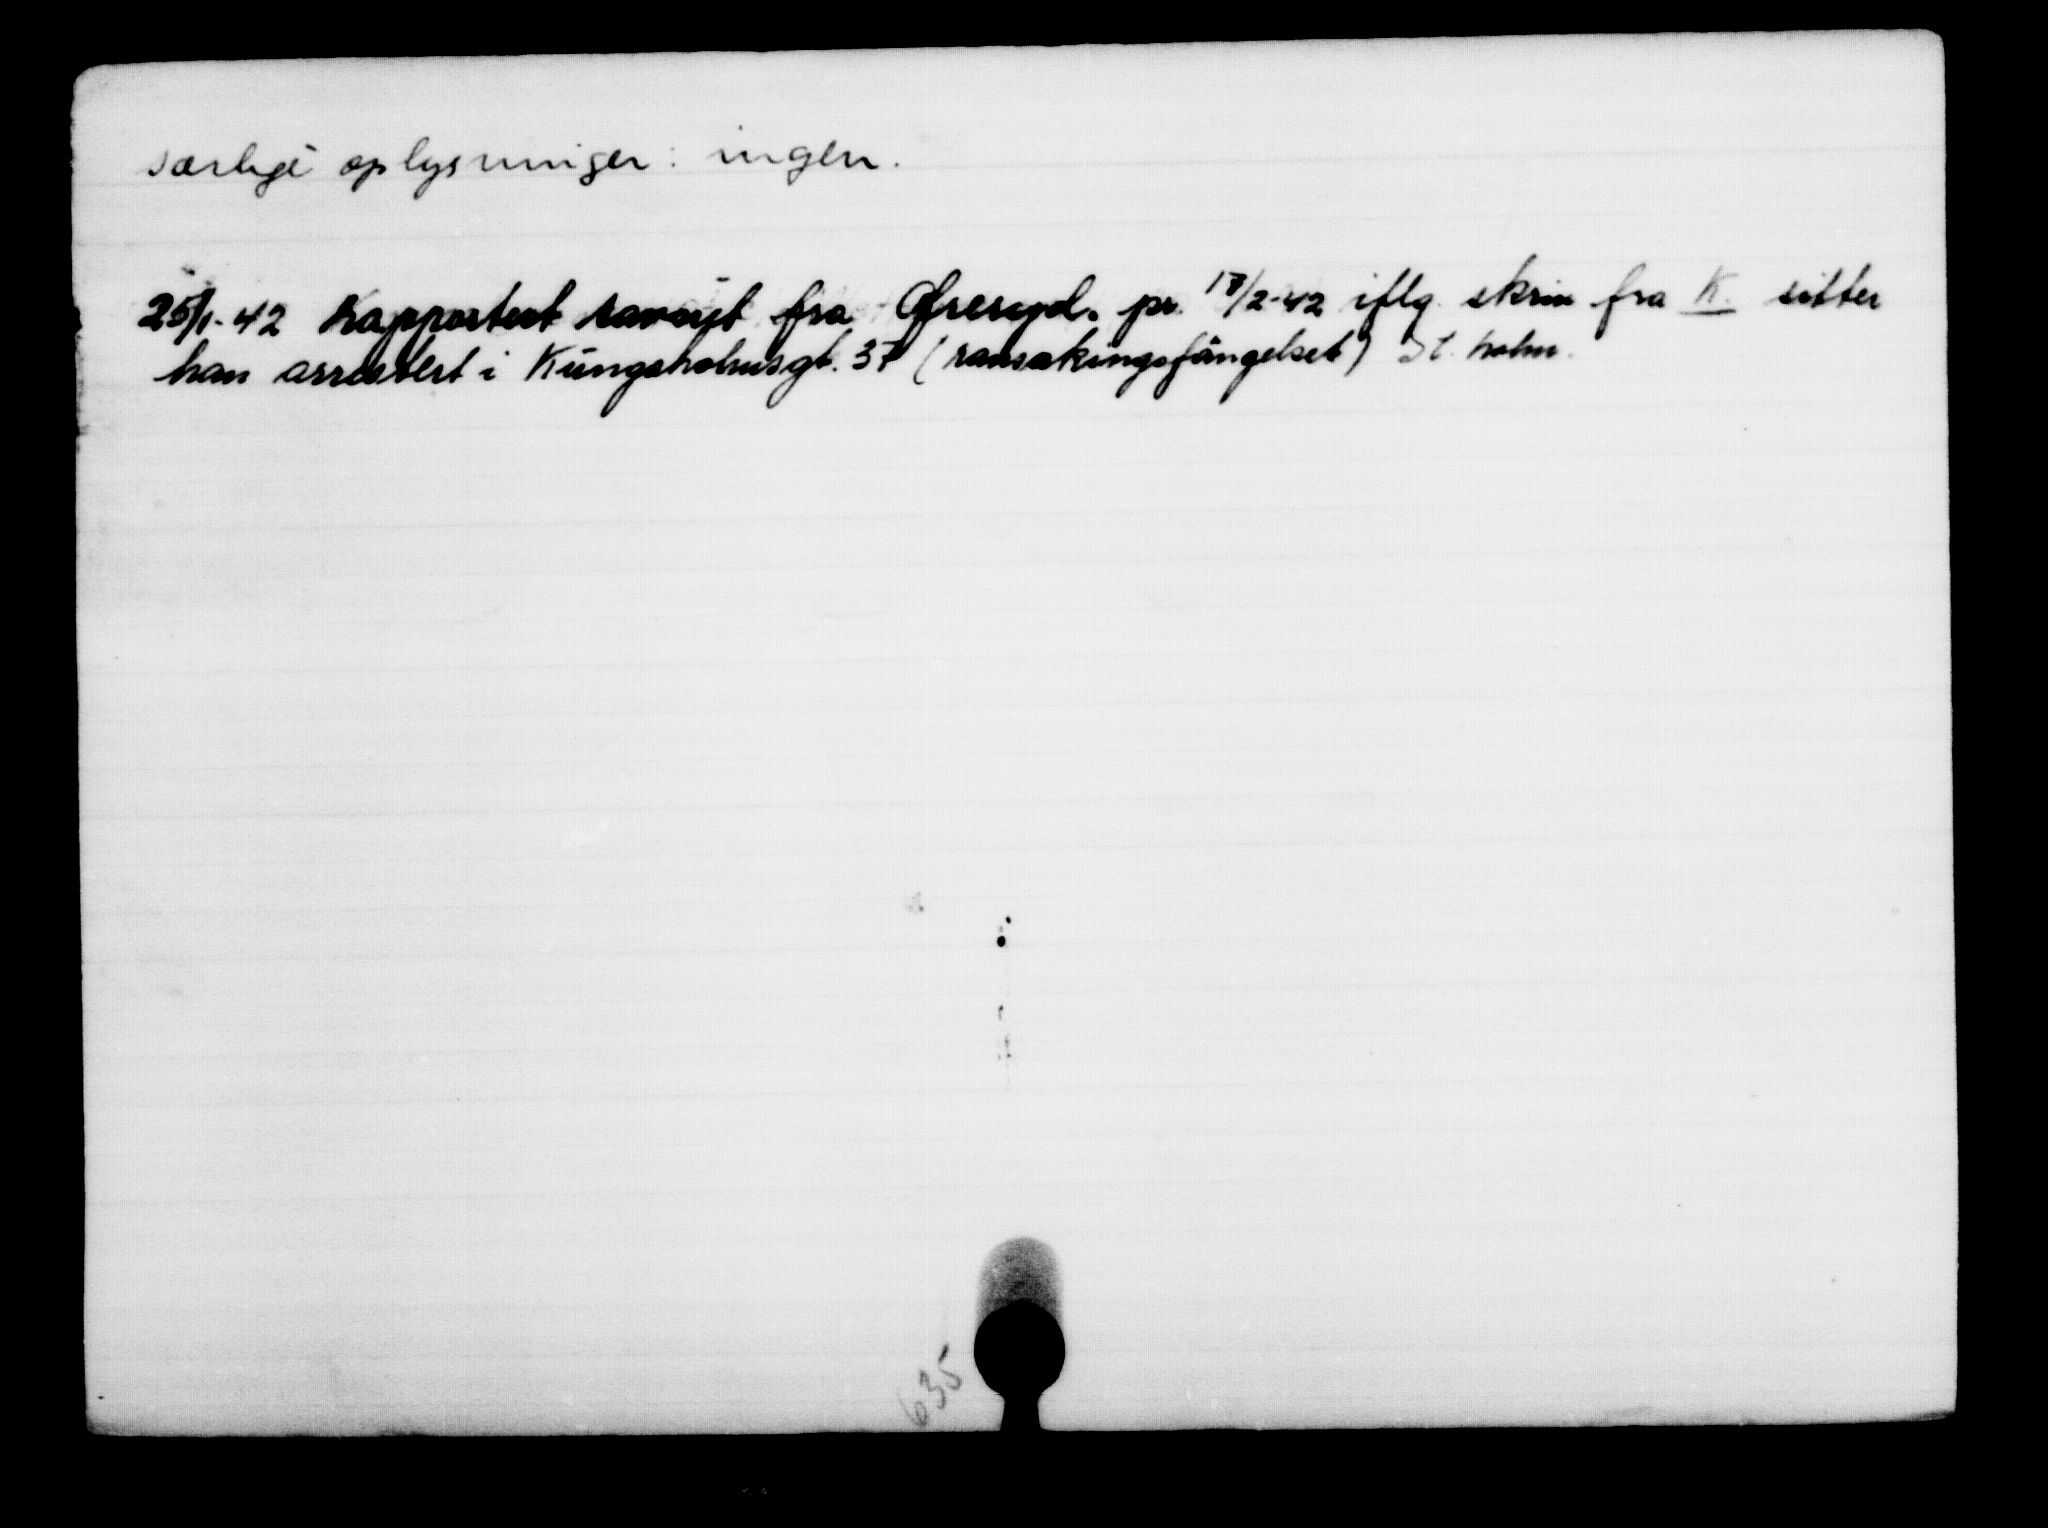 særlige oplysninger: ingen.
25/1-42 Rapportert savnet fra Öreryd. pr. 17/2-42 iflg. skriv fra K. sitter
han arrestert i Kungsholmsgt. 37 (ransakingsfängelset) St. holm.
635